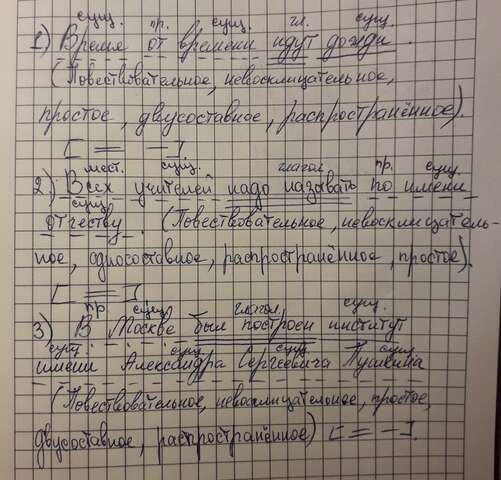 сущ. пр. сущ. гл. сущ.
1) Время от времени идут дожди.
(Повествовательное, невосклицательное,
простое, двусоставное, распространённое).
[ = — ].
мест. сущ. глагол пр. сущ.
2) Всех учителей надо называть по имени
сущ.
отчеству. (Повествовательное, невосклицатель-
ное, односоставное, распространённое, простое).
[ = ]
пр. сущ. глагол. сущ.
3) В Москве был построен институт
сущ. сущ. сущ. сущ.
имени Александра Сергеевича Пушкина
(Повествовательное, невосклицательное, простое,
двусоставное, распространённое) [ = — ].